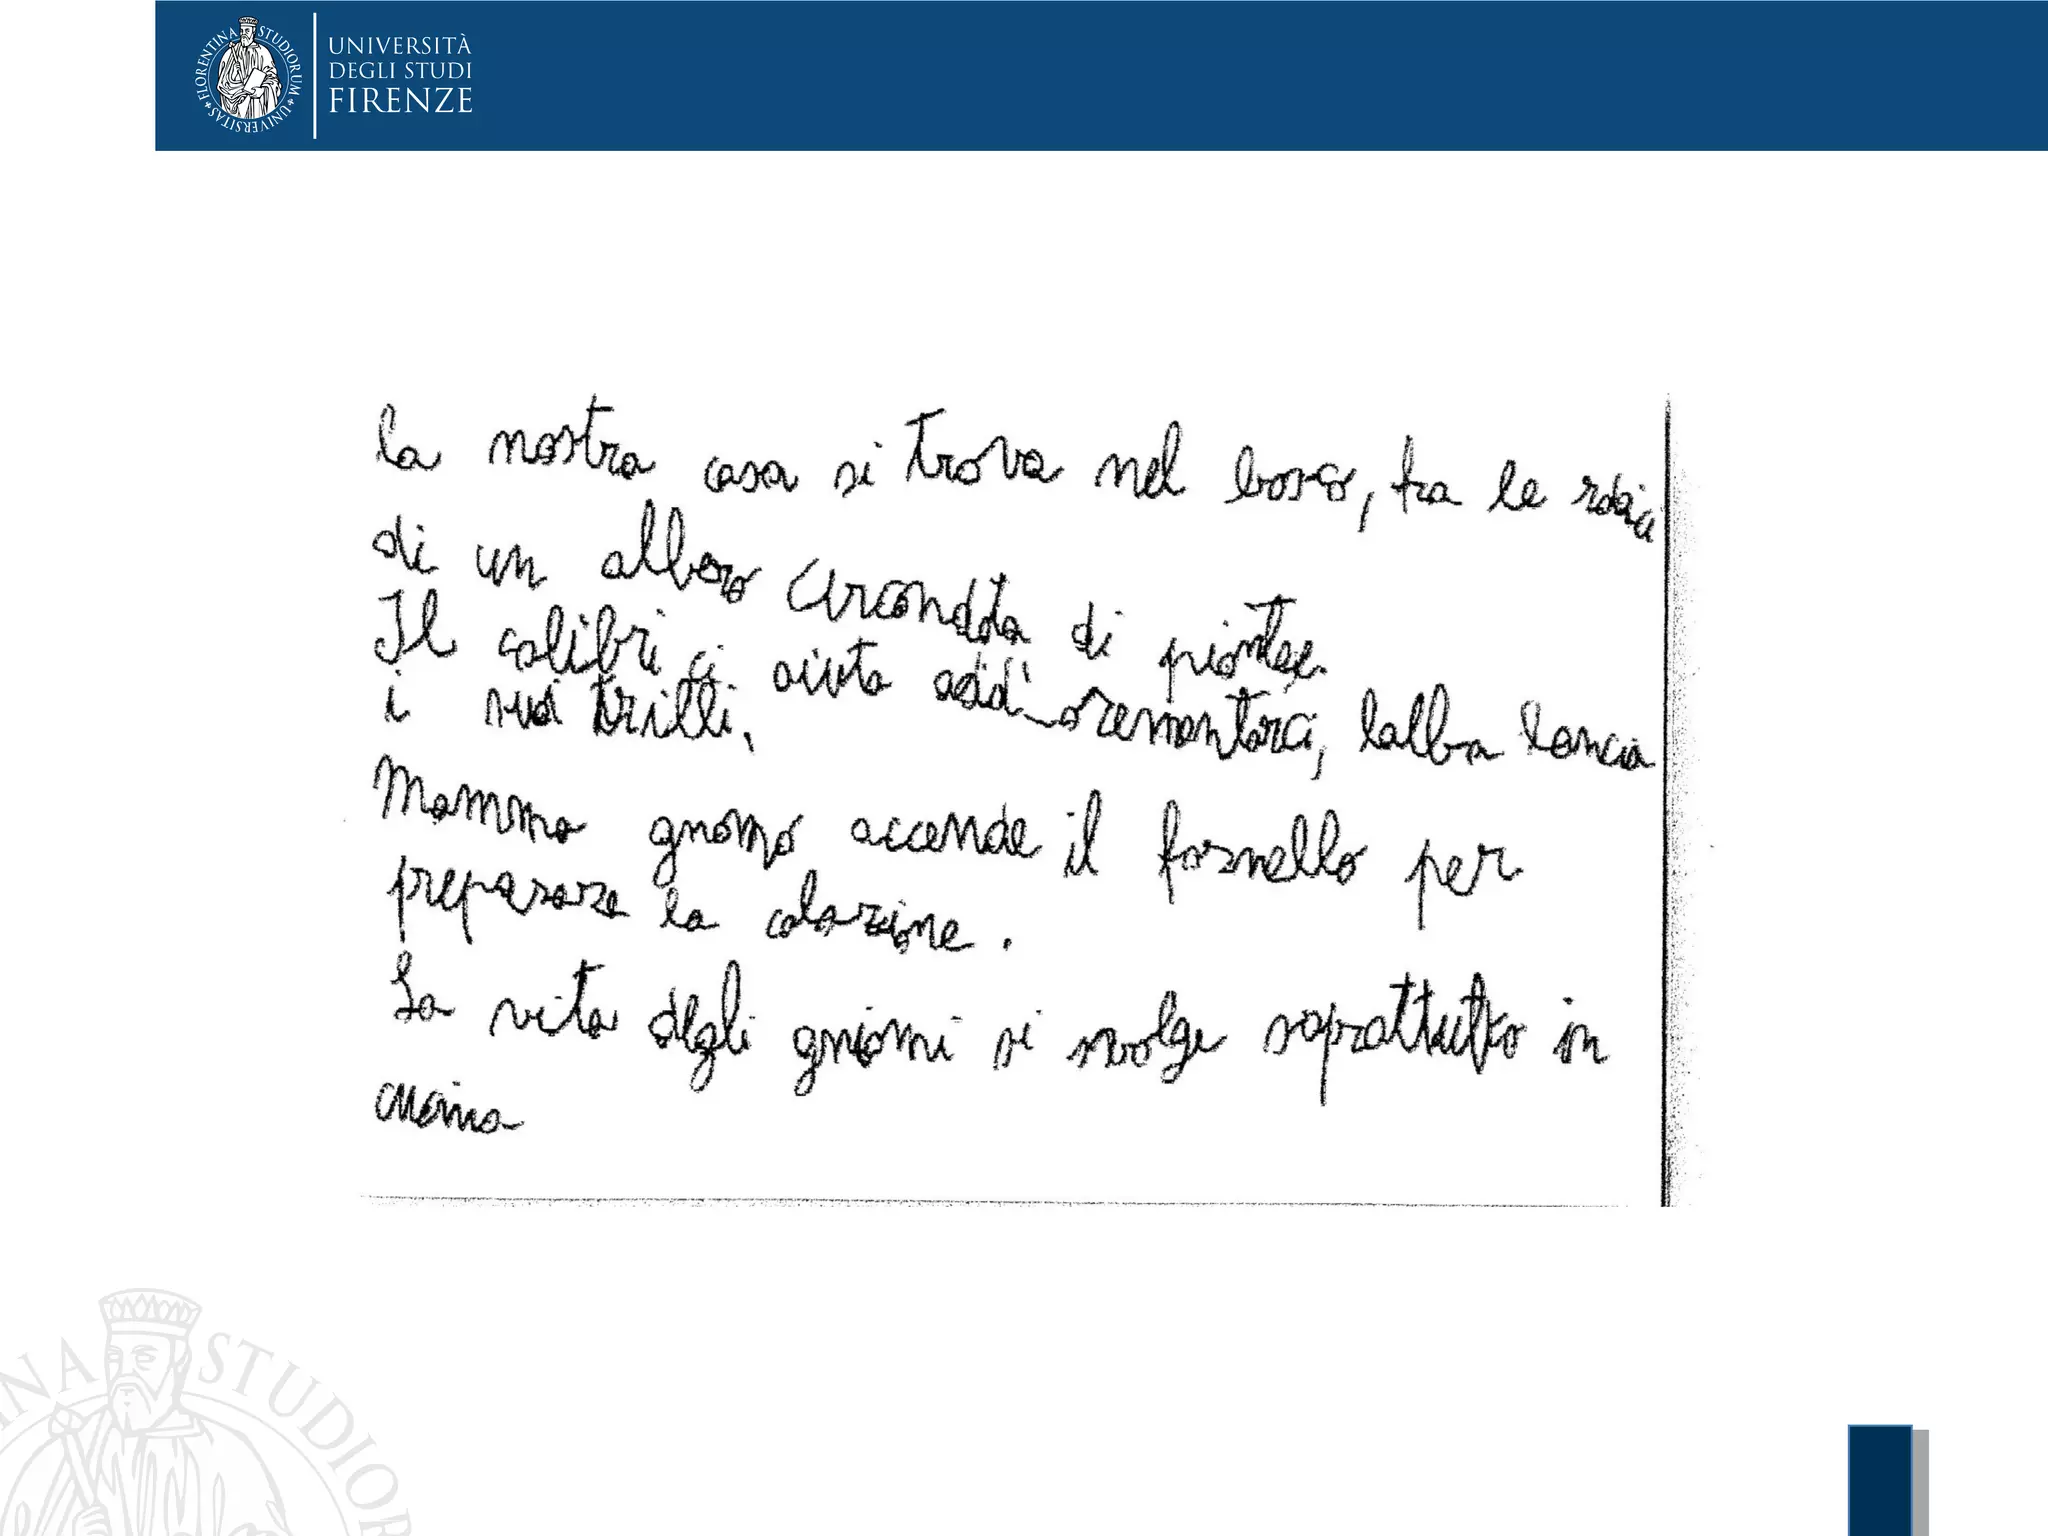 UNIVERSITÀ
DEGLI STUDI
FIRENZE
FLORENTINA STUDIORUM UNIVERSITAS
la nostra casa si trova nel bosco, tra le
di un albero circondata di
Il colibri ci aiuta lalba lancia
i suoi trilli.
Mamma gnomo accende il fornello per
preparare la colazione.
La vita degli gniomi si svolge soprattutto in
cucina
INA STUDIOR